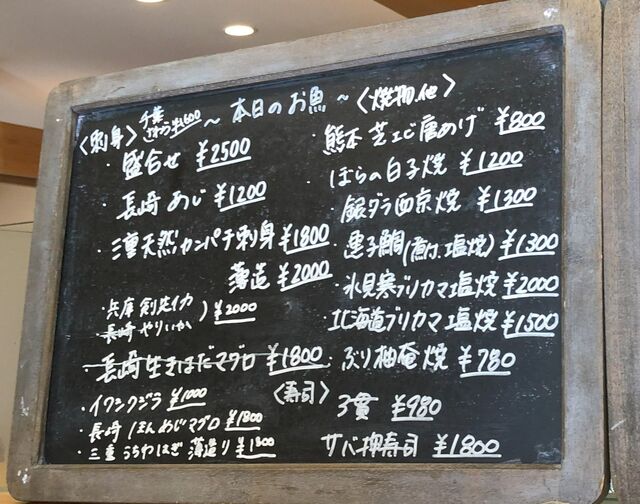 ～本日のお魚～
〈刺身〉
千葉
さわら ¥1600
・盛合せ ¥2500
・長崎 あじ ¥1200
・三重天然カンパチ刺身 ¥1800
薄造 ¥2000
・兵庫 剣先イカ
・長崎 やりいか ) ¥2000
・長崎 生きはだマグロ ¥1800
・イワシクジラ ¥1000
・長崎 ほんめじマグロ ¥1800
・三重 うちわはぎ 薄造り ¥1800
〈焼物.他〉
・熊本 芝エビ唐あげ ¥800
・ぼらの白子焼 ¥1200
・銀ダラ西京焼 ¥1300
・黒子鯛(煮付.塩焼) ¥1300
・氷見寒ブリカマ塩焼 ¥2000
北海道ブリカマ塩焼 ¥1500
・ぶり柚庵焼 ¥780
〈寿司〉
3貫 ¥980
サバ押寿司 ¥1800